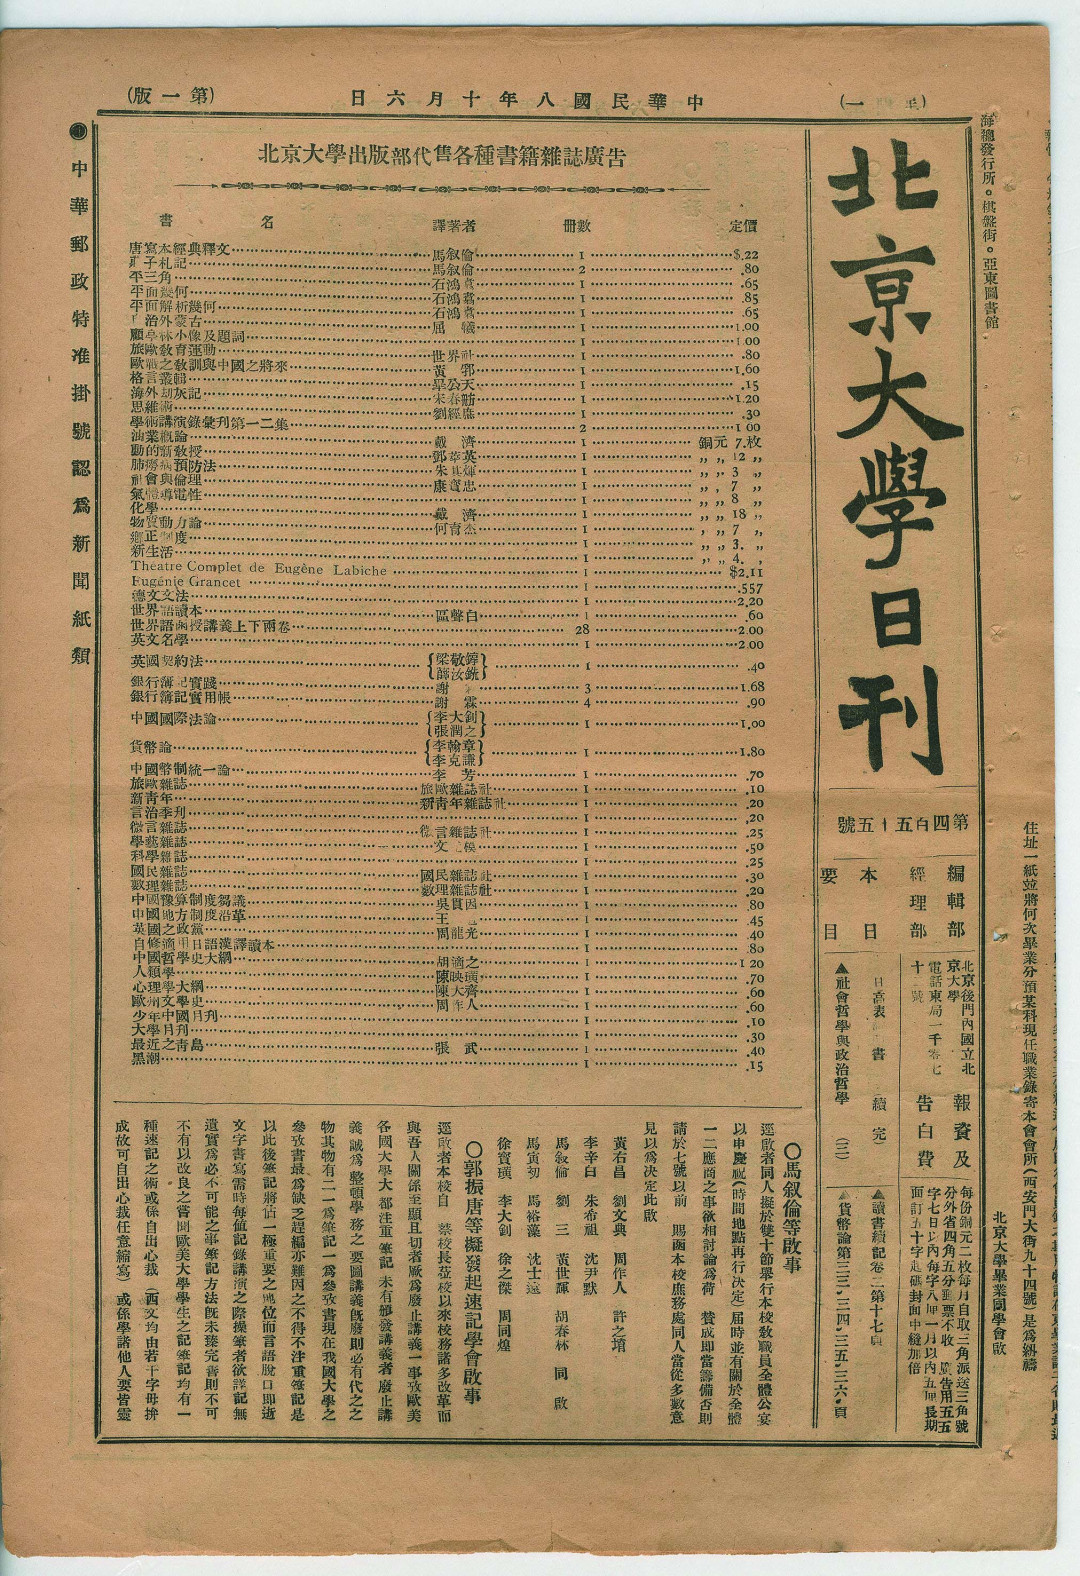 (第一版)
中華民國八年十月六日
北京大學日刊
第四百五十五號
編輯部
經理部
本日要目
北京後門內國立北京大學
電話東局一千零七十二號
報資及
告白費
每份銅元二枚每月自取三角派送三角號
分外省四角五分郵票不收
廣告用五五
字七日以內每字八厘一月以內五厘長期
面訂五十字起碼封面中縫加倍
▲社會哲學與政治哲學
(三)
▲讀書續記卷二第十七頁
▲貨幣論第三三•三四•三五•三六•頁
●中華郵政特准掛號認爲新聞紙類
北京大學出版部代售各種書籍雜誌廣告
書名 譯著者 冊數 定價
唐寫本經典釋文 馬叙倫 1 $.22
莊子札記 馬叙倫 2 .80
平三角 石鴻翥 1 .65
平面幾何 石鴻翥 1 .85
平面解析幾何 石鴻翥 1 .65
治外蒙古 屈𤩴 1 1.00
顧亭林小像及題詞 1 1.00
旅歐教育運動 世界社 1 .80
歐戰之教訓與中國之將來 黃郛 1 1.60
格言叢輯 1 .15
海外劫灰記 1 1.20
思維術 劉經庶 1 .30
學術講演錄彙刊第一二集 2 1.00
油業概論 戴濟 1 銅元7.枚
動的新教授 1 ,, ,, 12 ,,
肺癆病預防法 1 ,, ,, 3 ,,
社會與倫理 1 ,, ,, 7 ,,
氣體導電性 1 ,, ,, 8 ,,
化學 戴濟 1 ,, ,, 18 ,,
物質動力論 何育杰 1 ,, ,, 7 ,,
鄉正制度 1 ,, ,, 3. ,,
新生活 1 ,, ,, 4. ,,
Théatre Complet de Eugêne Labiche 1 $2.11
Eugénie Grancet 1 .557
德文文法 1 2.20
世界語讀本 區聲白 1 .60
世界語函授講義上下兩卷 28 2.00
英文名學 1 2.00
英國契約法 {梁敬錞 薛汝銑} 1 .40
銀行簿記實踐 謝霖 3 1.68
銀行簿記實用帳 謝霖 4 .90
中國國際法論 {李大釗 張潤之} 1 1.00
貨幣論 {李翰章 李克謙} 1 1.80
中國幣制統一論 李芳 1 .70
旅歐雜誌 旅歐雜誌社 1 .10
新靑年 新靑年雜誌社 1 .20
言治季刊 1 .20
微言雜誌 微言雜誌社 1 .25
學藝雜誌 1 .50
科學雜誌 1 .25
國民雜誌 國民雜誌社 1 .30
數理雜誌 數理雜誌社 1 .20
中國豫算制度芻議 吳貫因 1 .80
中國地方制度沿革 1 .45
英國之政黨 周龍光 1 .40
自修適用日語漢譯讀本 1 .80
中國哲學史大綱 胡適之 1 1.20
人類學 陳映璜 1 .70
心理學大綱 陳大齊 1 .60
歐洲文學史 周作人 1 .60
少年中國月刊 1 .10
大學月刊 1 .30
最近之靑島 張武 1 .40
黑潮 1 .15
○馬叙倫等啟事
逕啟者同人擬於雙十節舉行本校敎職員全體公宴
以申慶祝(時間地點再行決定)屆時並有關於全體
一二應商之事欲相討論爲荷 賛成即當籌備否則
請於七號以前 賜函本校庶務處同人當從多數意
見以爲決定此啟
黃右昌 劉文典 周作人 許之塤
李辛白 朱希祖 沈尹默
馬叙倫 劉三 黃世暉 胡春林 同啟
馬寅初 馬裕藻 沈士遠
徐寶璜 李大釗 徐之傑 周同煌
○郭振唐等擬發起速記學會啟事
逕啟者本校自 蔡校長蒞校以來校務諸多改革而
與吾人關係至顯且切者厥爲廢止講義一事攷歐美
各國大學大都注重筆記 未有頒發講義者 廢止講
義誠爲整頓學務之要圖講義旣廢則必有代之之
物其物有二一爲筆記一爲參攷書現在我國大學之
參攷書最爲缺乏趕編亦難因之不得不注重筆記是
以此後筆記將佔一極重要之地位而言語脫口即逝
文字書寫需時每値記錄講演之際操筆者欲詳記無
遺實爲必不可能之事筆記方法旣未臻完善則不可
不有以改良之嘗聞歐美大學學生之記筆記均有一
種速記之術或係自出心裁(西文均由若干字母拚
成故可自出心裁任意縮寫)或係學諸他人要皆靈
海總發行所。棋盤街。亞東圖書館
住址一紙並將何次畢業分預某科現任職業錄寄本會會所(西安門大街九十四號)是爲級禱
北京大學畢業同學會啟